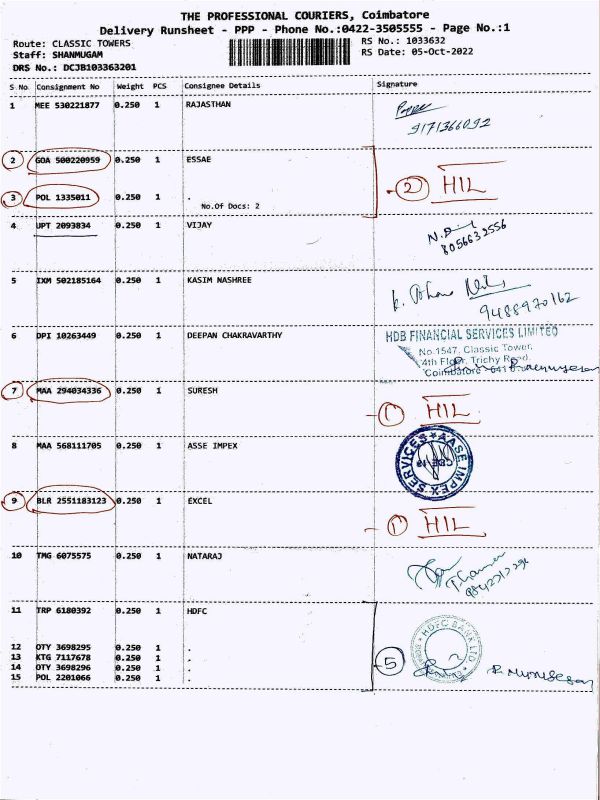 THE PROFESSIONAL COURIERS, Coimbatore
Delivery Runsheet - PPP - Phone No.:0422-3505555 - Page No.:1
Route: CLASSIC TOWERS
RS No.: 1033632
Staff: SHANMUGAM
RS Date: 05-Oct-2022
DRS No.: DCJB103363201
S No Consignment No Weight PCS Consignee Details Signature
1 MEE 530221877 0.250 1 RAJASTHAN
9171366092
2 GOA 500220959 0.250 1 ESSAE
2 HIL
3 POL 1335011 0.250 1 .
No.Of Docs: 2
4 UPT 2093834 0.250 1 VIJAY
8056632556
5 IXM 502185164 0.250 1 KASIM NASHREE
9488970162
6 DPI 10263449 0.250 1 DEEPAN CHAKRAVARTHY
HDB FINANCIAL SERVICES LIMITED
No.1547, Classic Tower,
4th Floor, Trichy Road,
Coimbatore
7 MAA 294034336 0.250 1 SURESH
1 HIL
8 MAA 568111705 0.250 1 ASSE IMPEX
AASE IMPEX SERVICES
9 BLR 2551183123 0.250 1 EXCEL
1 HIL
10 TMG 6075575 0.250 1 NATARAJ
11 TRP 6180392 0.250 1 HDFC
HDFC BANK LTD
12 OTY 3698295 0.250 1 .
13 KTG 7117678 0.250 1 .
5
14 OTY 3698296 0.250 1 .
15 POL 2201066 0.250 1 .